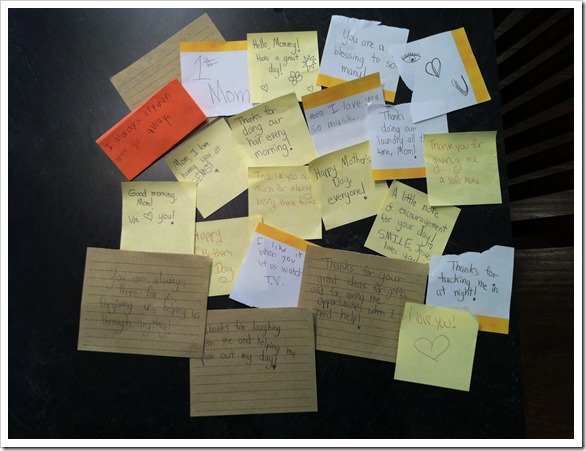 1#
Mom
Hello, Mommy!
Have a great
day!
You are a
blessing to so
many!
I always
when
you go
Mom, I love
having you at
Thanks for
doing our
hair every
morning!
mom I love you
so much.
Thanks
doing our
laundry all the
time, Mom!
Thank you for
giving me
a safe home
Good morning,
Mom!
We you!
Thank you so
much for always
being there
Happy Mothers
Day,
everyone!
A little note
of encouragement
for your day!
SMILE, Jesus
loves you!
Happy
Mothers
Day
I like it
when you
let us watch
T.V.
Thanks for
tucking me in
at night!
You are always
there for us
forgiving us, helping us
through anything!
Thanks for your
great ideas for gifts
and for giving me
opportunities when I
need help!
Thanks for laughing
with me and helping my
out my day!
I love you!